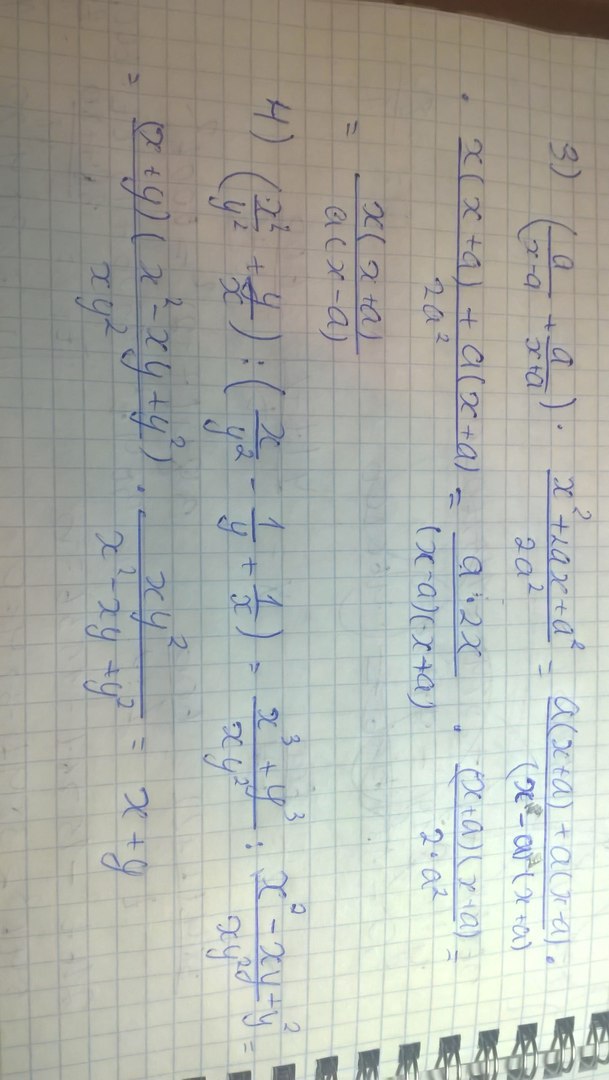 3) (a/(x-a) + a/(x+a)) · (x²+2ax+a²)/(2a²) = (a(x+a)+a(x-a))/((x-a)(x+a)) ·
· (x(x+a)+a(x+a))/(2a²) = (a·2x)/((x-a)(x+a)) · ((x+a)(x+a))/(2·a²) =
= (x(x+a))/(a(x-a))
4) (x²/y² + y/x) : (x/y² - 1/y + 1/x) = (x³+y³)/(xy²) : (x²-xy+y²)/(xy²) =
= ((x+y)(x²-xy+y²))/(xy²) · (xy²)/(x²-xy+y²) = x+y